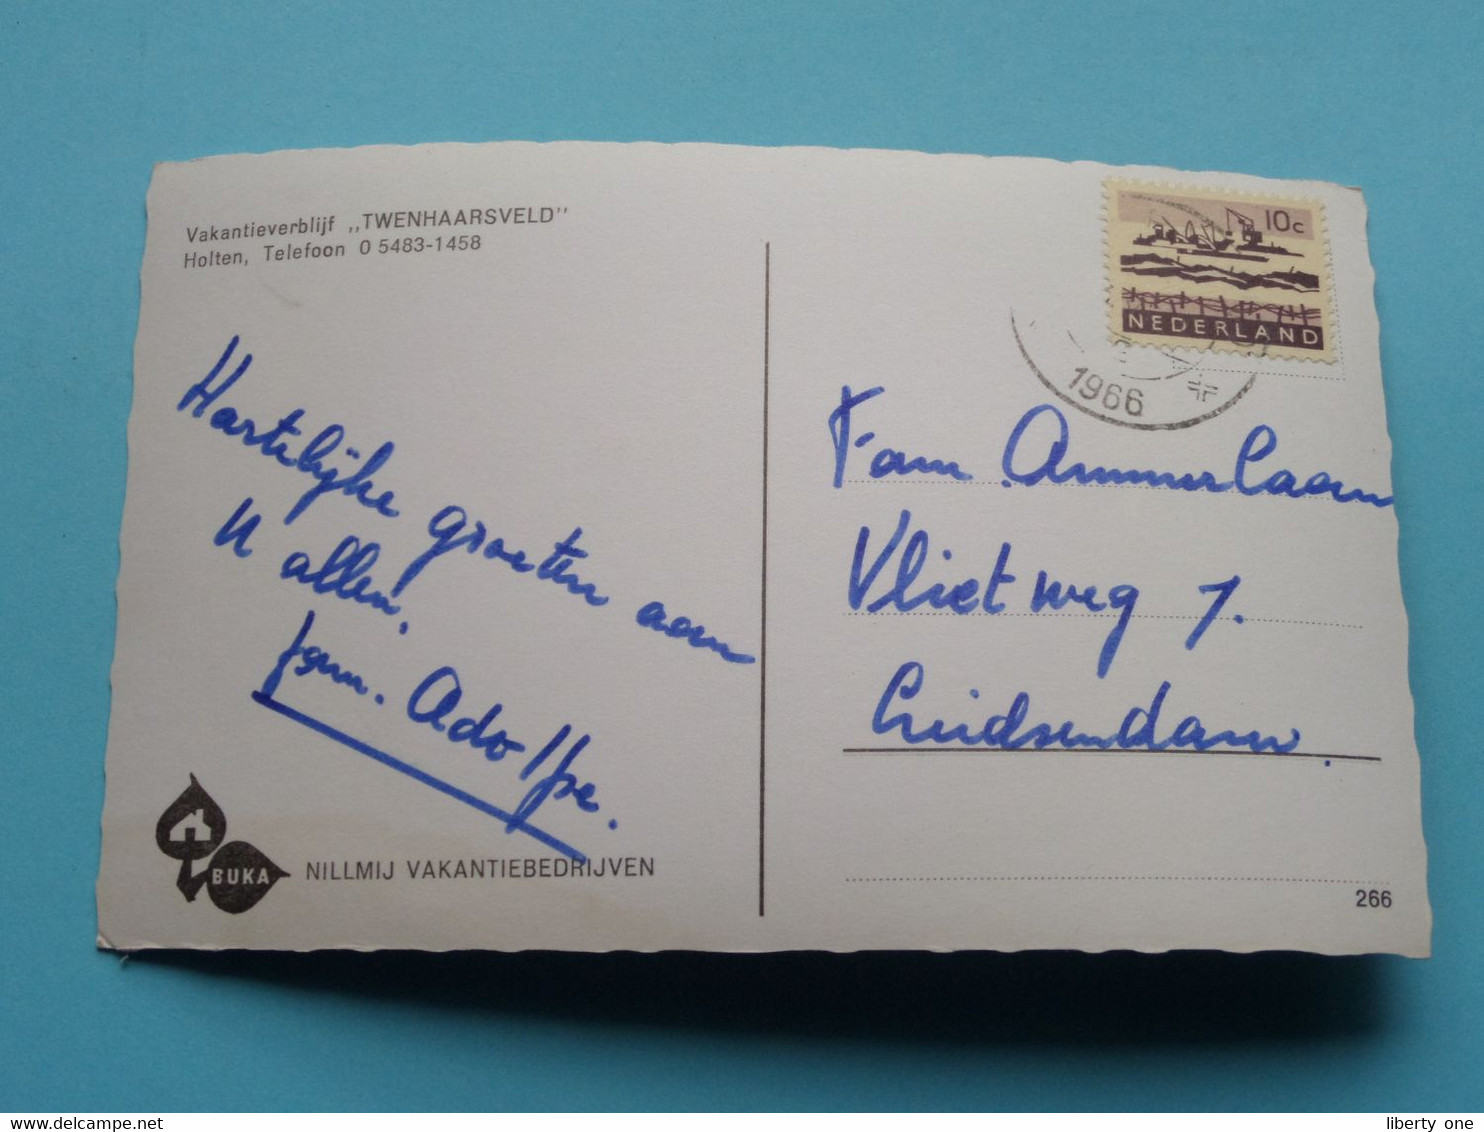 Vakantieverblijf „TWENHAARSVELD”
Holten, Telefoon 0 5483-1458
Hartelijke groeten aan
U allen.
fam. Adolfse.
BUKA
NILLMIJ VAKANTIEBEDRIJVEN
10c
NEDERLAND
1966
Fam. Ammerlaan
Vlietweg 7.
Leidsendam.
266
liberty one